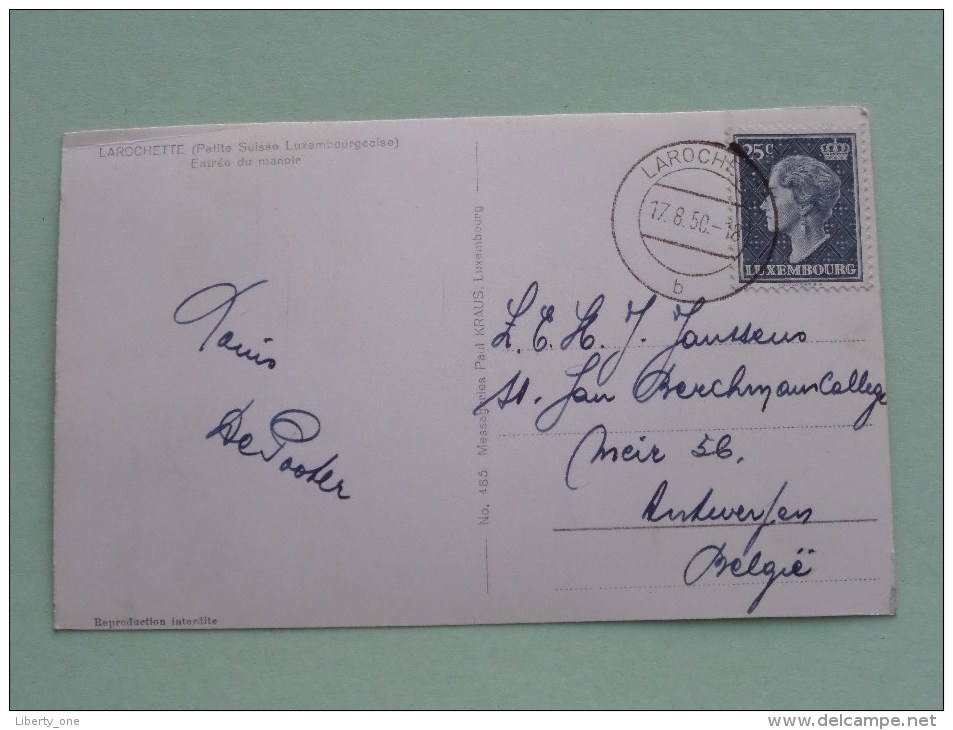 LAROCHETTE (Petite Suisse Luxembourgeoise)
Entrée du manoir
LAROCHE
17.8.50.-18
b
25 C
LUXEMBOURG
Louis
De Pooter
No. 485 Messageries Paul KRAUS, Luxembourg
Z. E. H. J. Janssens
St. Jan Berchmanscollege
Meir 56.
Antwerpen
België
Reproduction interdite
Liberty_one
www.delcampe.net